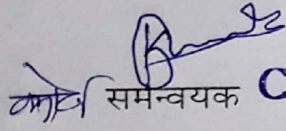 कोर्स समन्वयक C